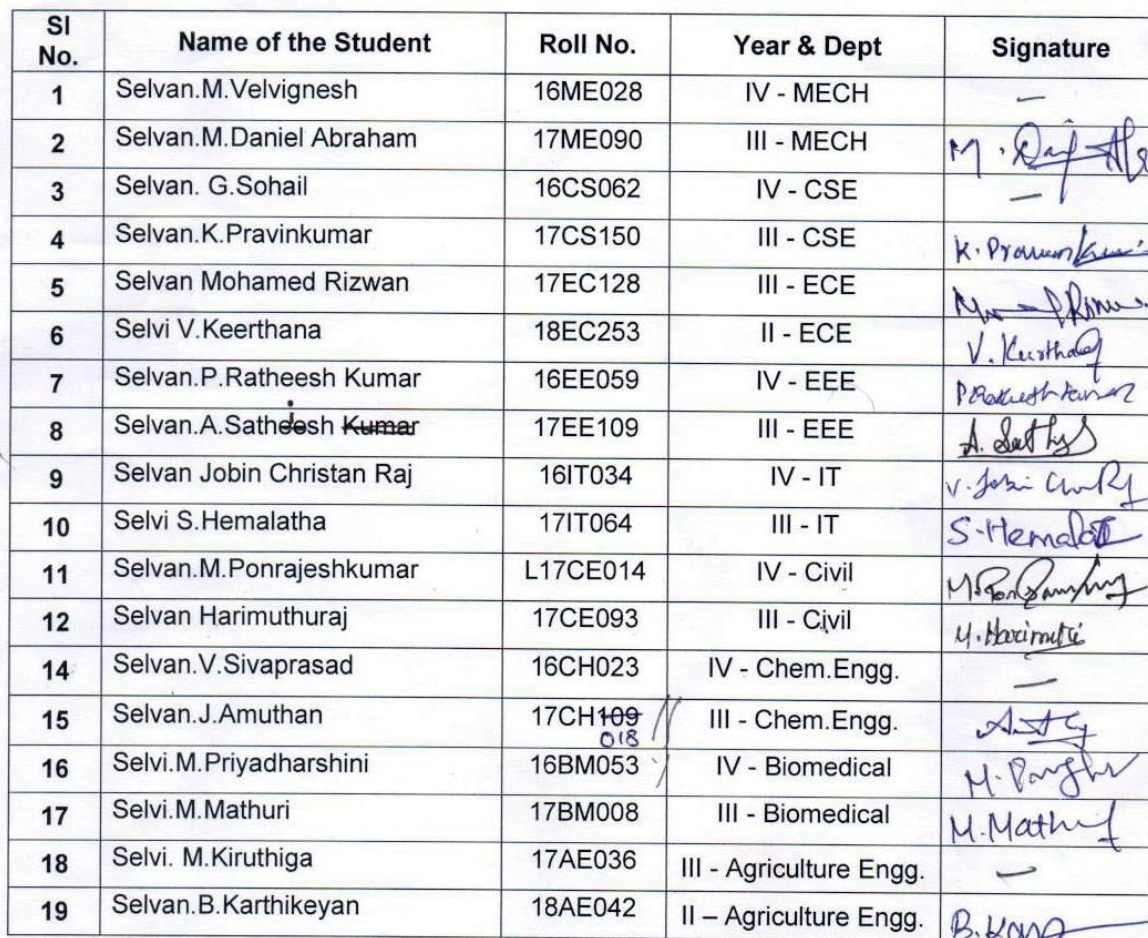 Sl No. Name of the Student Roll No. Year & Dept Signature
1 Selvan.M.Velvignesh 16ME028 IV - MECH –
2 Selvan.M.Daniel Abraham 17ME090 III - MECH M.
3 Selvan. G.Sohail 16CS062 IV - CSE –
4 Selvan.K.Pravinkumar 17CS150 III - CSE K.
5 Selvan Mohamed Rizwan 17EC128 III - ECE
6 Selvi V.Keerthana 18EC253 II - ECE V.
7 Selvan.P.Ratheesh Kumar 16EE059 IV - EEE
8 Selvan.A.Satheesh Kumar 17EE109 III - EEE A.
9 Selvan Jobin Christan Raj 16IT034 IV - IT V.
10 Selvi S.Hemalatha 17IT064 III - IT S.
11 Selvan.M.Ponrajeshkumar L17CE014 IV - Civil
12 Selvan Harimuthuraj 17CE093 III - Civil M.
14 Selvan.V.Sivaprasad 16CH023 IV - Chem.Engg. –
15 Selvan.J.Amuthan 17CH109 III - Chem.Engg.
018
16 Selvi.M.Priyadharshini 16BM053 IV - Biomedical M.
17 Selvi.M.Mathuri 17BM008 III - Biomedical M.
18 Selvi. M.Kiruthiga 17AE036 III - Agriculture Engg. –
19 Selvan.B.Karthikeyan 18AE042 II – Agriculture Engg. B.